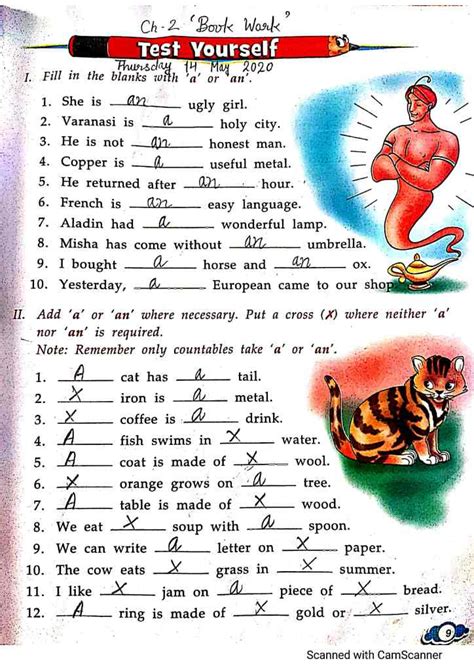 Ch-2 "Book Work"
Test Yourself
Thursday 14 May 2020
I. Fill in the blanks with 'a' or 'an'.
1. She is an ugly girl.
2. Varanasi is a holy city.
3. He is not an honest man.
4. Copper is a useful metal.
5. He returned after an hour.
6. French is an easy language.
7. Aladin had a wonderful lamp.
8. Misha has come without an umbrella.
9. I bought a horse and an ox.
10. Yesterday, a European came to our shop.
II. Add 'a' or 'an' where necessary. Put a cross (✗) where neither 'a'
nor 'an' is required.
Note: Remember only countables take 'a' or 'an'.
1. A cat has a tail.
2. X iron is a metal.
3. X coffee is a drink.
4. A fish swims in X water.
5. A coat is made of X wool.
6. X orange grows on a tree.
7. A table is made of X wood.
8. We eat X soup with a spoon.
9. We can write a letter on X paper.
10. The cow eats X grass in X summer.
11. I like X jam on a piece of X bread.
12. A ring is made of X gold or X silver.
9
Scanned with CamScanner